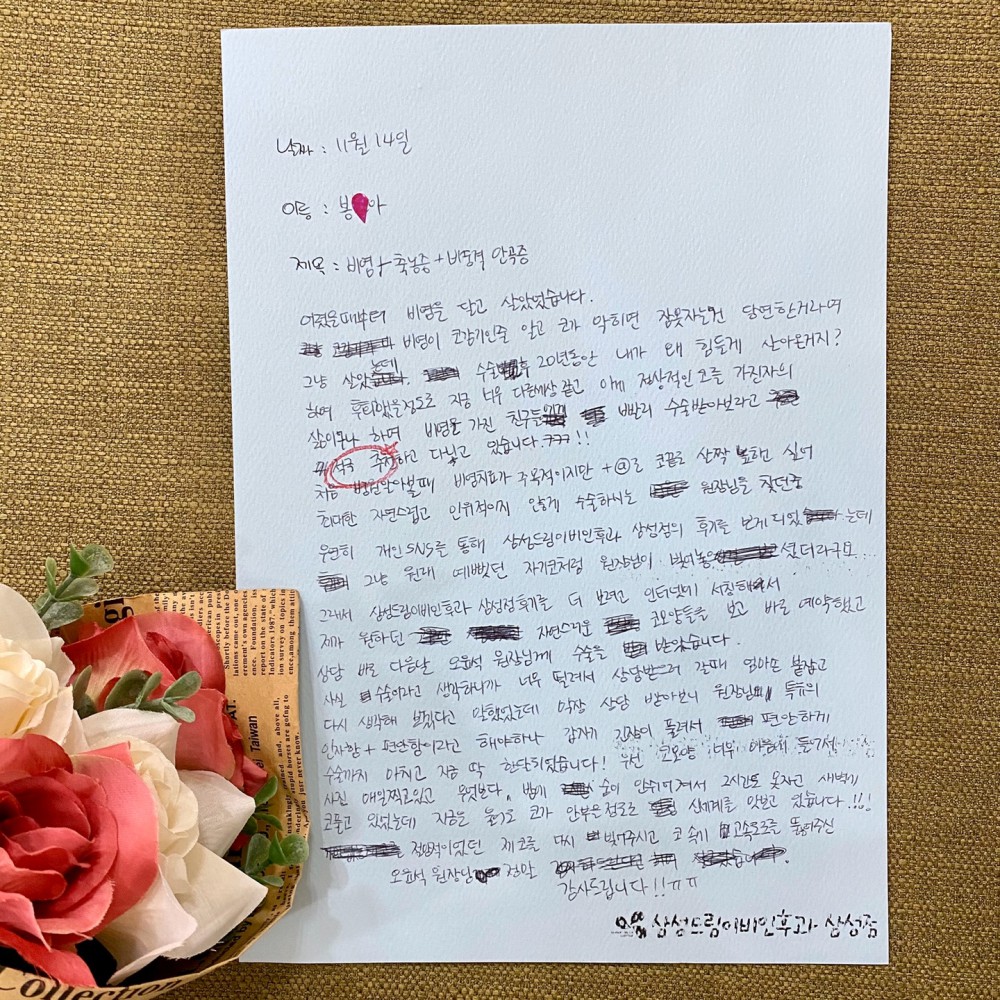 날짜 : 11월 14일
이름 : 봉 아
제목 : 비염 + 축농증 + 비중격 만곡증
어렸을때부터 비염을 달고 살았었습니다.
비염이 코감기인줄 알고 코가 막히면 잠못자는건 당연한거라며
그냥 살았는데 수술후 20년동안 내가 왜 힘들게 살아온거지?
하며 후회했을정도로 지금 너무 다른세상 같고 이게 정상적인 코를 가진자의
삶이구나 하며 비염을 가진 친구들 빨리 수술받아보라고
적극 추천하고 다니고 있습니다 ㅋㅋㅋ!!
처음 병원알아볼때 비염치료가 주목적이지만 +@로 코끝을 살짝 높히고 싶어
최대한 자연스럽고 인위적이지 않게 수술하시는 원장님을 찾던중
우연히 개인 SNS를 통해 삼성드림이비인후과 삼성점의 후기를 보게되었는데
그냥 원래 예뻤던 자기코처럼 원장님이 빚어놓으셨더라구요..
그래서 삼성드림이비인후과 삼성점후기를 더 보려고 인터넷에 서칭해서
제가 원하던 자연스러운 코모양들을 보고 바로 예약했고
상담 바로 다음날 오윤석 원장님께 수술을 받았습니다.
사실 수술이라고 생각하니까 너무 떨려서 상담받으러 갈때 엄마손 붙잡고
다시 생각해 보겠다고 말했었는데 막상 상담 받아보니 원장님의 특유의
인자함 + 편안함이라고 해야하나 갑자기 긴장이 풀려서 편안하게
수술까지 마치고 지금 딱 한달되었습니다! 우선 코모양 너무 마음에 들구요,
사진 매일찍고있고 무엇보다, 밤에 숨이 안쉬어져서 2시간도 못자고 새벽에
코풀고 있었는데 지금은 울기도 코가 안부은정도로 신세계를 맛보고 있습니다!!!!
절망적이었던 제 코를 다시 빚어주시고 코 속에 고속도로를 뚫어주신
오윤석 원장님 정말
감사드립니다!!ㅠㅠ
삼성드림이비인후과 삼성점
Shortly before the De
1987."which
Taiwan
Collection